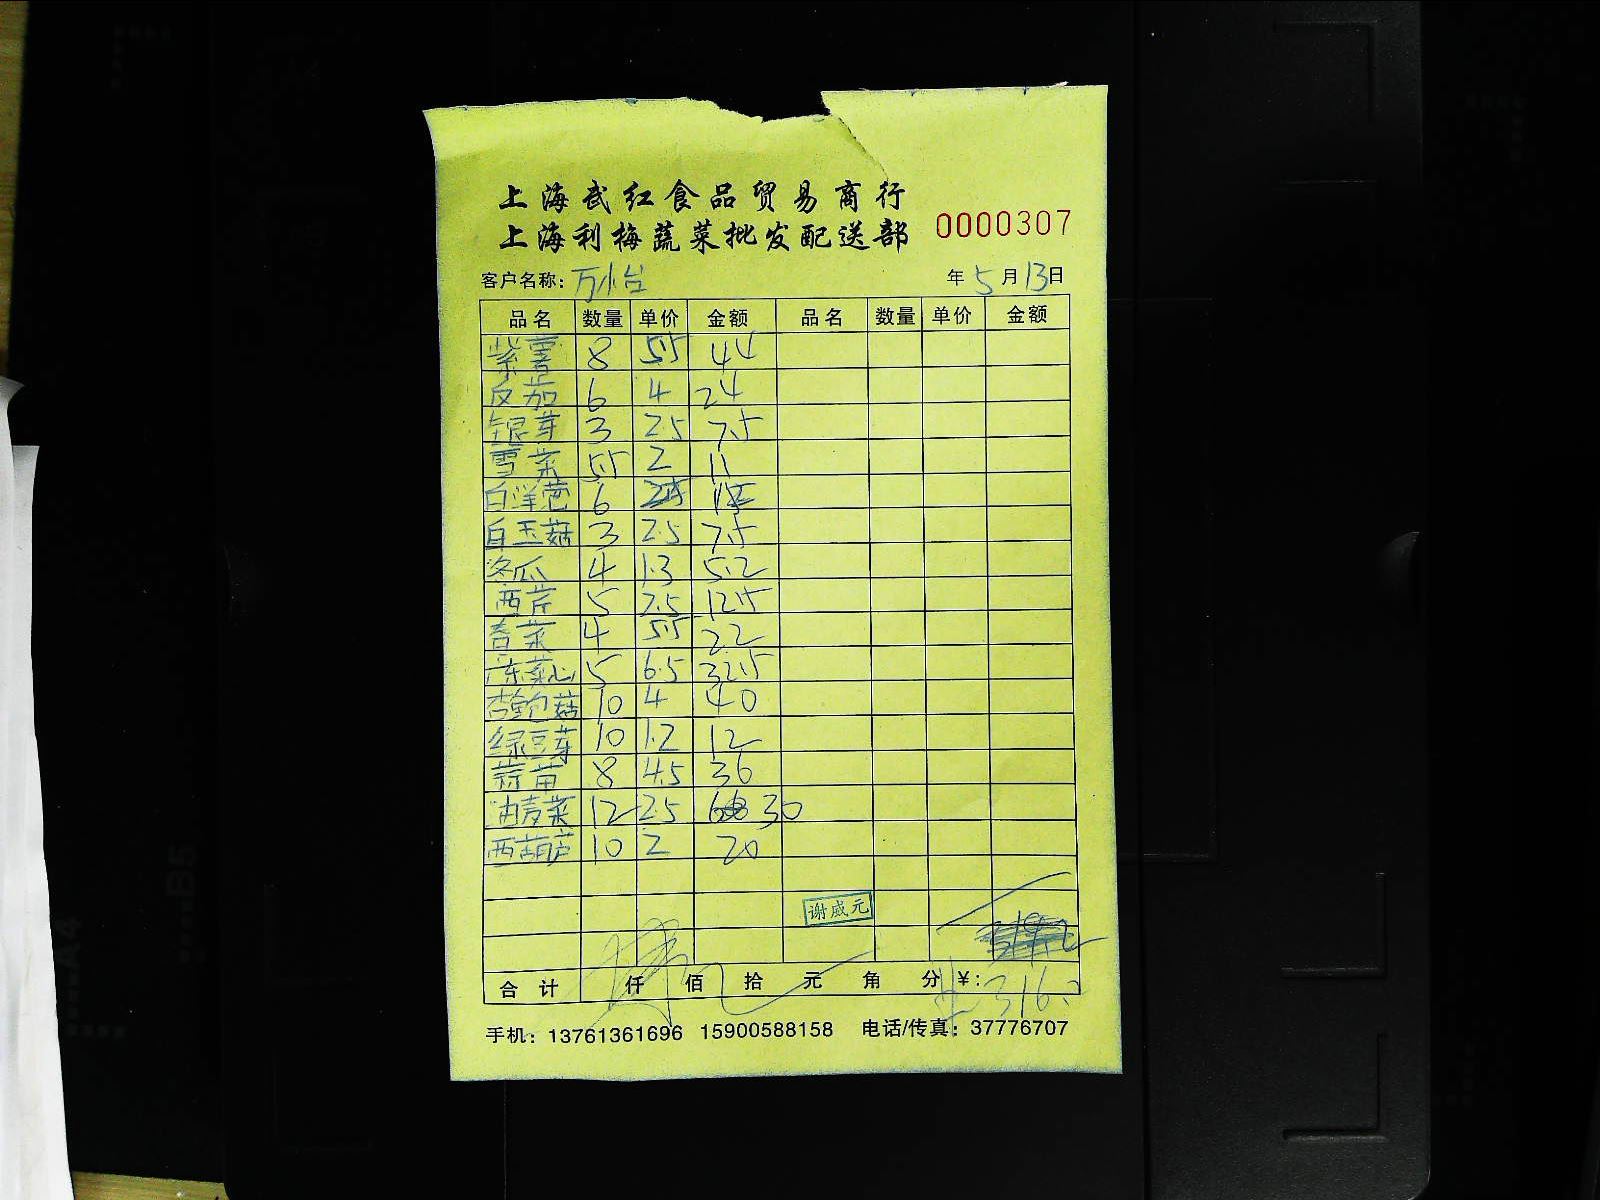 上海武红食品贸易商行
上海利梅蔬菜批发配送部 0000307
客户名称: 万怡 年 5 月 13 日
品名 数量 单价 金额 品名 数量 单价 金额
紫薯 8 5.5 44
反茄 6 4 24
银芽 3 2.5 7.5
雪菜 5.5 2 11
白洋葱 6
白玉菇 3 2.5 7.5
冬瓜 4 1.3 5.2
西芹 5 2.5 12.5
香菜 4 5.5 22
广东菜心 5 6.5 32.5
杏鲍菇 10 4 40
绿豆芽 10 1.2 12
蒜苗 8 4.5 36
油麦菜 12 2.5 30
西葫芦 10 2 20
谢威元
合计 仟 佰 拾 元 角 分 ¥: 316.2
手机: 13761361696 15900588158 电话/传真: 37776707
B5
A4